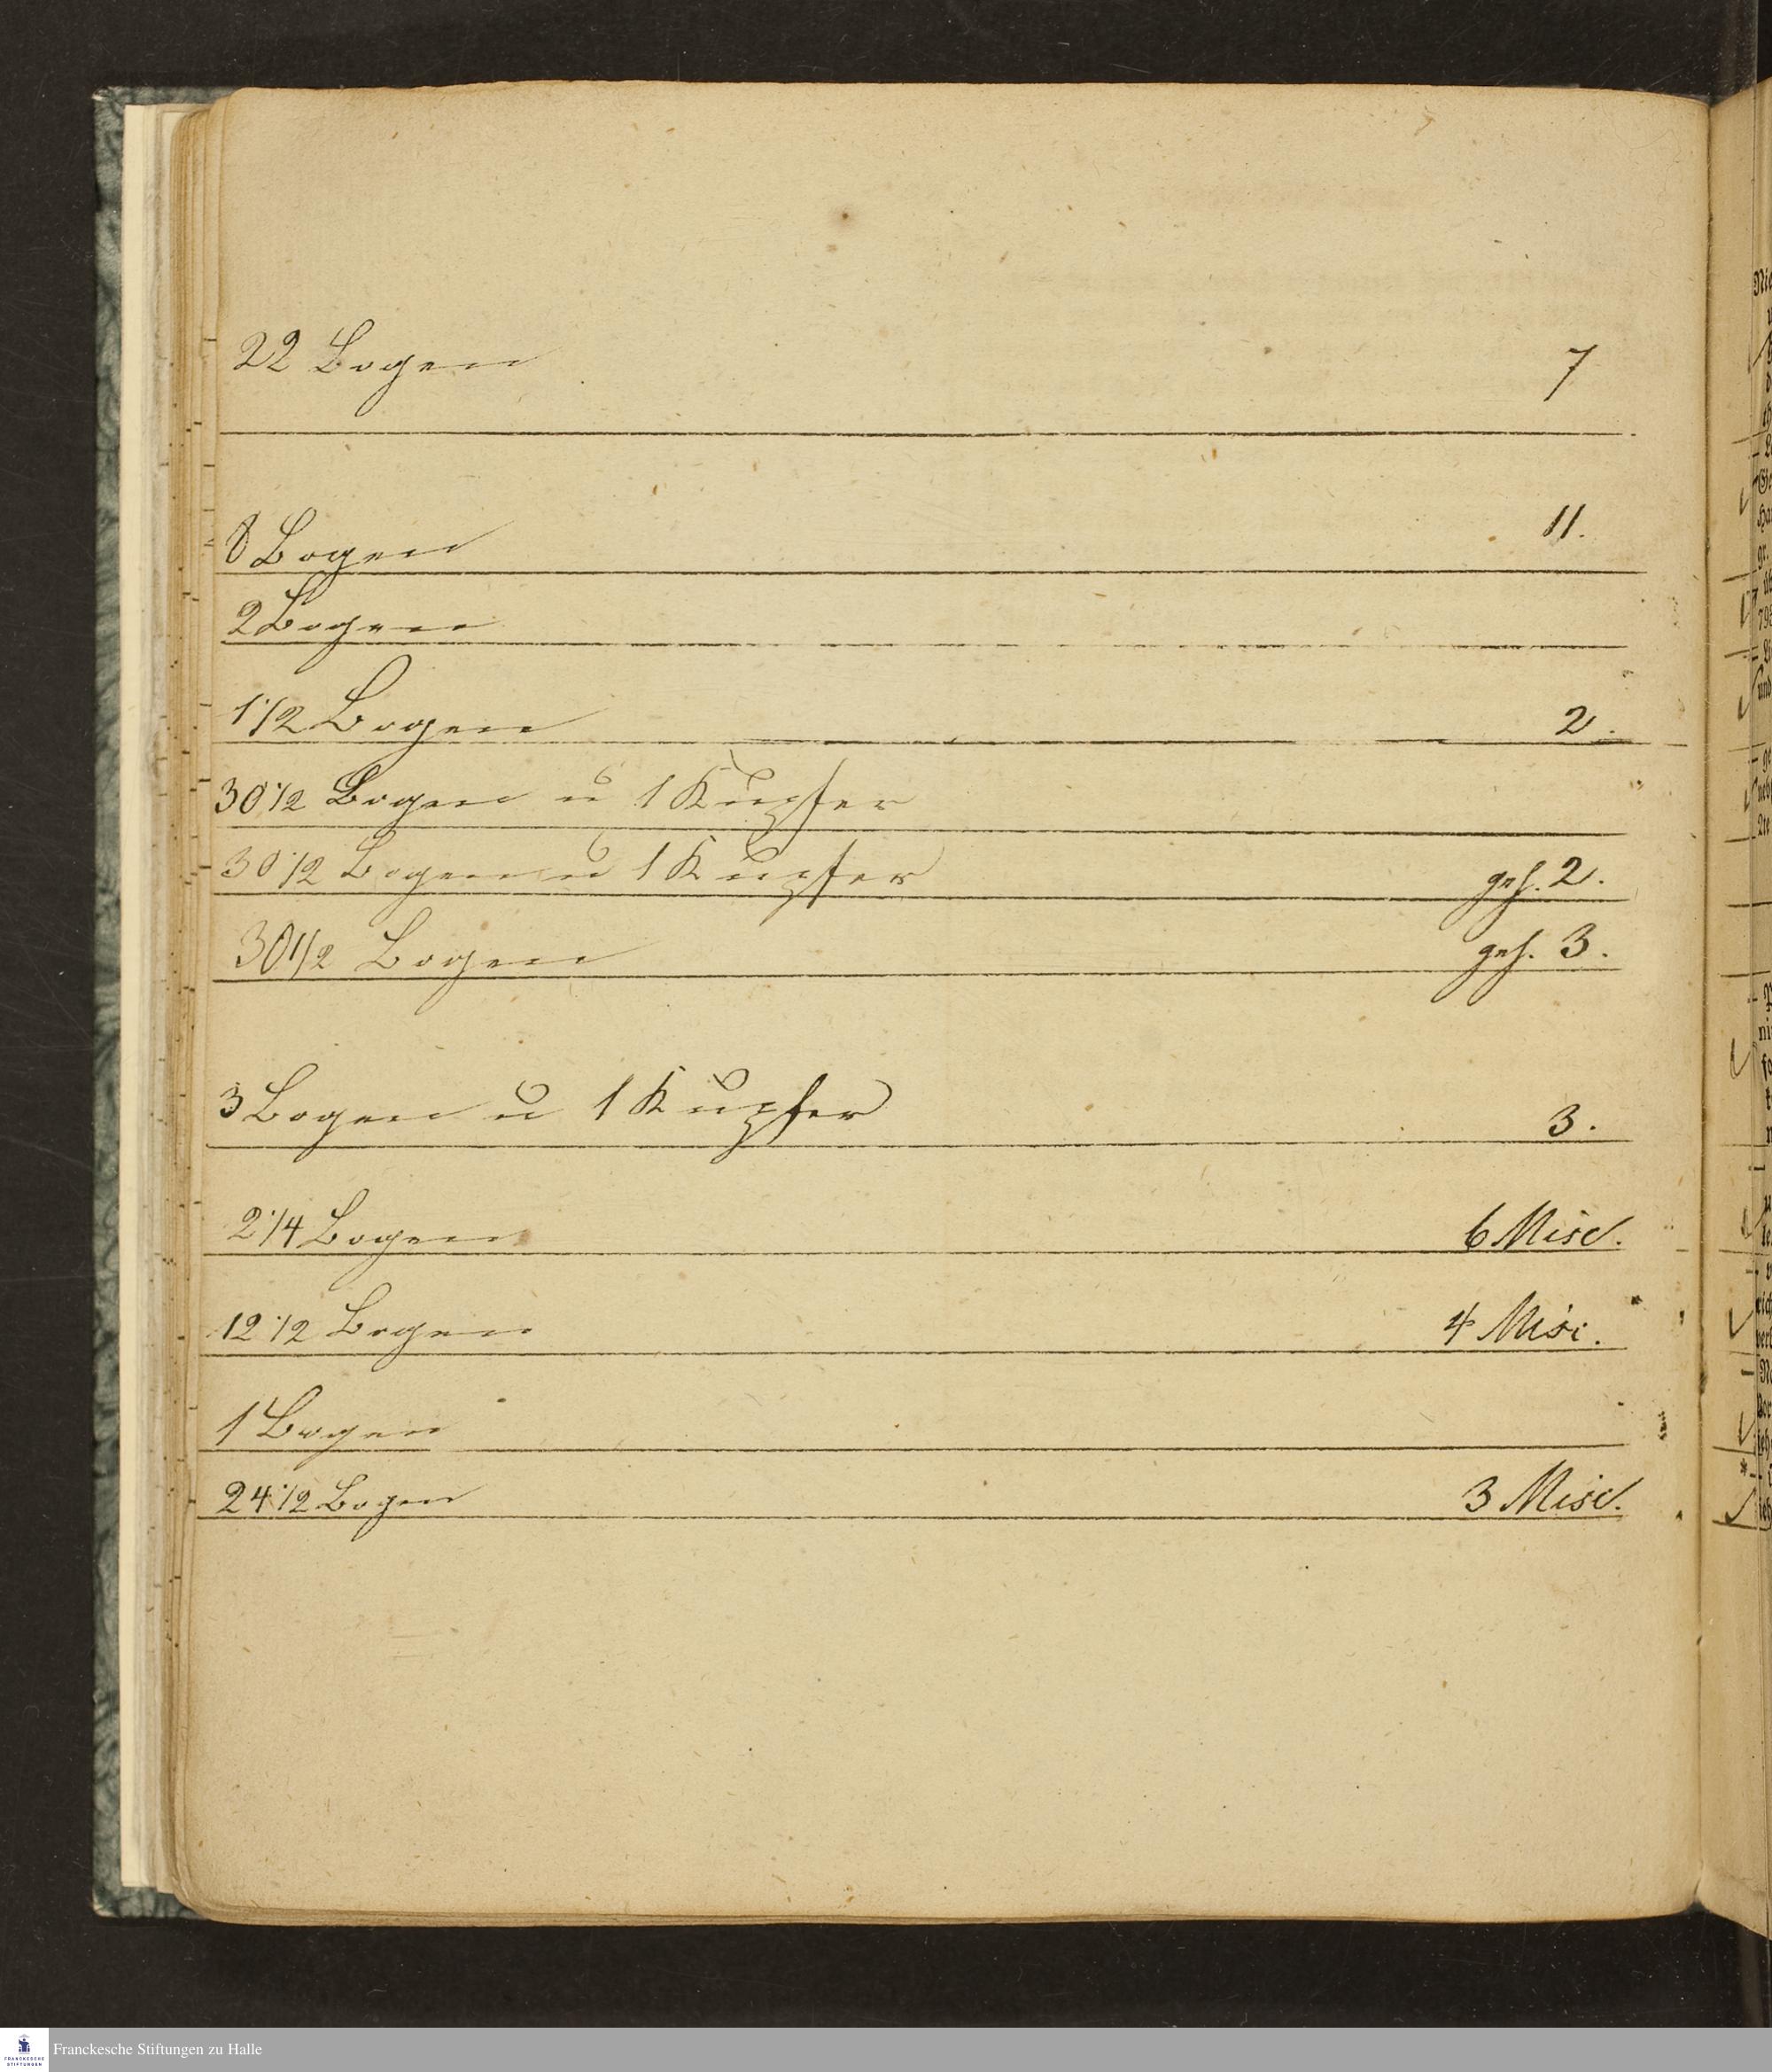 22 Bogen 7
8 Bogen 11.
2 Bogen
1 1/2 Bogen 2.
30 1/2 Bogen u 1 Kupfer
30 1/2 Bogen u 1 Kupfer geh. 2.
30 1/2 Bogen geh. 3.
3 Bogen u 1 Kupfer 3.
2 1/4 Bogen 6 Misc.
12 1/2 Bogen 4 Misc.
1 Bogen
24 1/2 Bogen 3 Misc.
Franckesche Stiftungen zu Halle
FRANCKESCHE
STIFTUNGEN